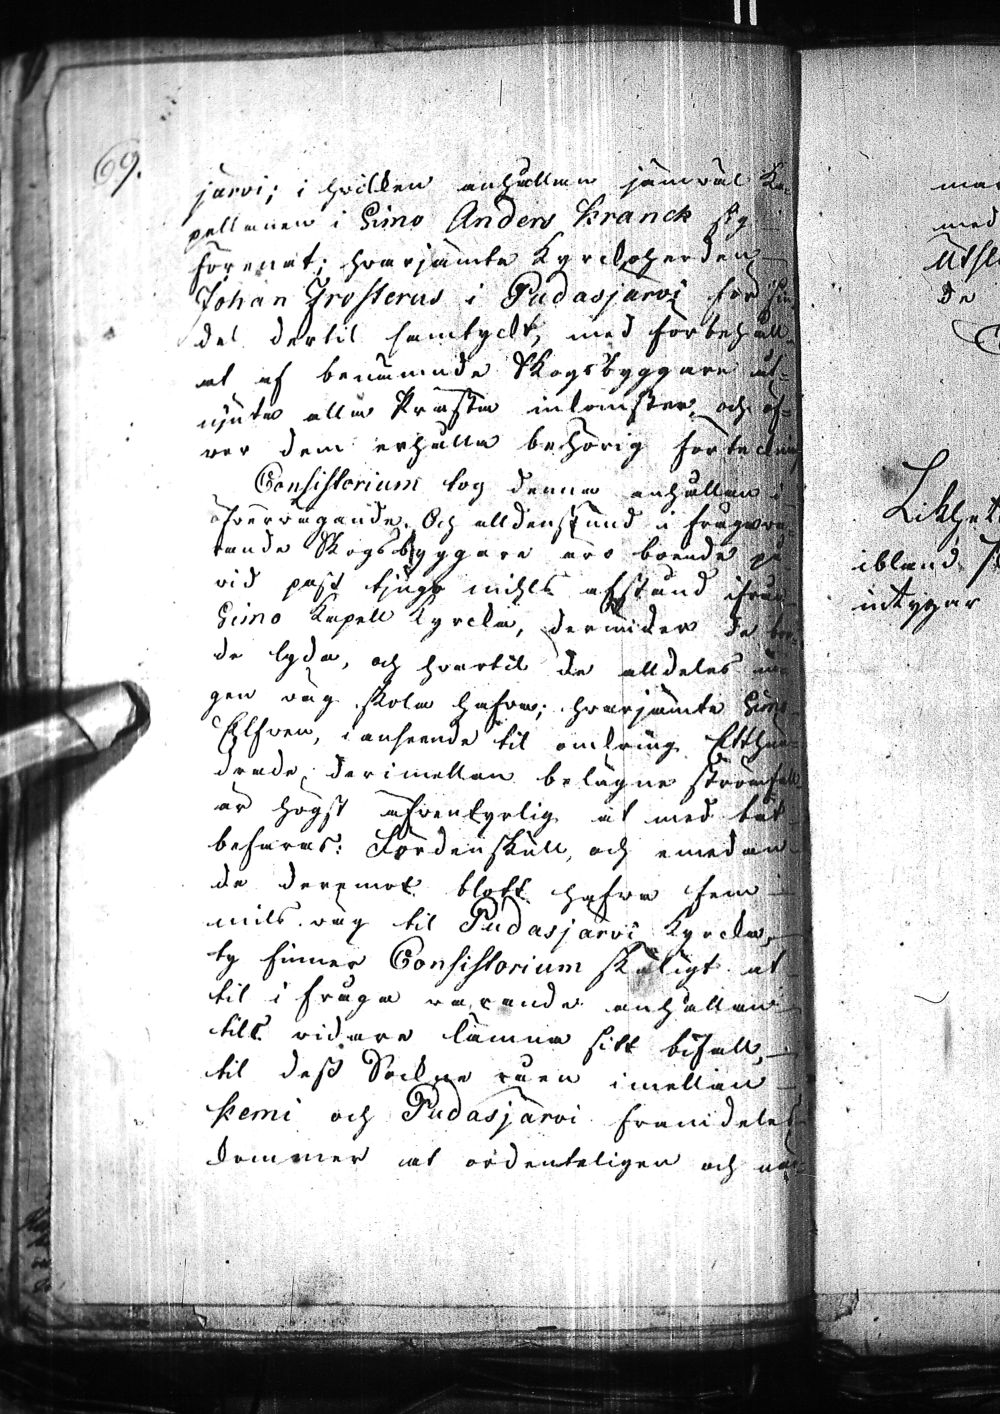 69.
järvi; i hvilken anhållan jämväl Ka-
pellanen i Simo Anders Kranck sig
förenat; hvarjämte Kyrckoherden
Johan Frosterus i Pudasjärvi för sin
del dertil samtyckt, med förbehåll
at af benämnde Skogsbyggare åt-
njuta alla Prästa inkomster, och öf-
ver dem erhålla behörig förteckning
Consistorium tog denna anhållan i
öfvervägande. Och alldenstund i fråga va-
rande Skogsbyggare äro boende på
vid pass tjugo mihls afstånd ifrån
Simo Kapell Kyrcka, derunder de bor-
de lyda, och hvartil de alldeles in-
gen väg skola hafva; hvarjämte Simo
Elfven, i anseende til omkring Etthun-
drade derimellan belägne strömfall
är högst äfventyrlig at med båt
befaras: Fördenskull, och emedan
de deremot blott hafva fem
mils väg til Pudasjärvi Kyrcka,
ty finner Consistorium skäligt at
til i fråga varande anhållan
tills vidare lämna sitt bifall,
til dess Sockne råen imellan
Kemi och Pudasjärvi framdeles
kommer at ordenteligen och
med
Utsl
de
Likhet
ibland
intygar